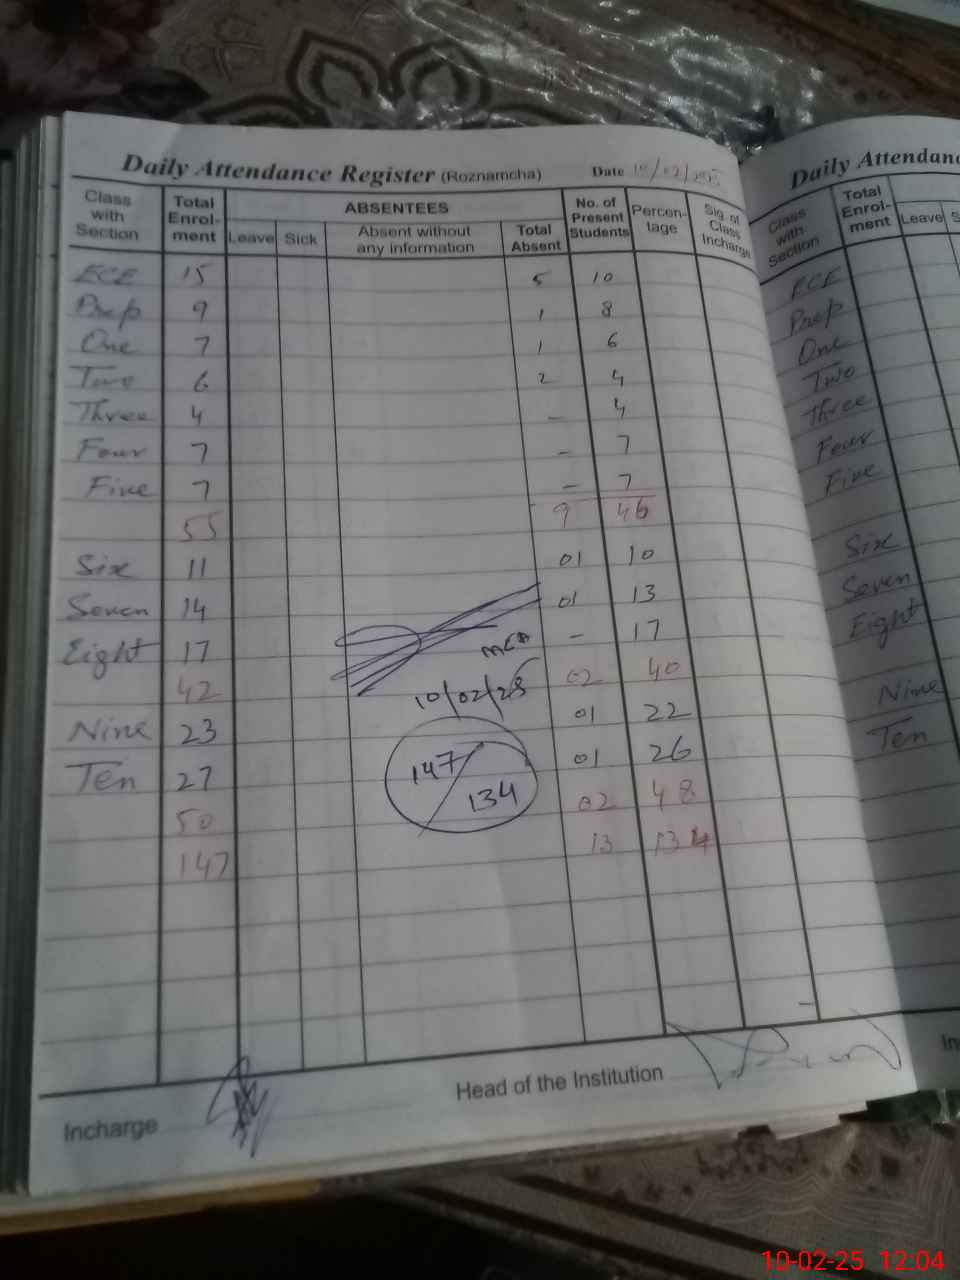 Daily Attendance Register (Roznamcha) Date 10/02/2025
Class with Section Total Enrol-ment ABSENTEES No. of Present Students Percen-tage Sig. of Class Incharge
Leave Sick Absent without any information Total Absent
ECE 15 5 10
Prep 9 1 8
One 7 1 6
Two 6 2 4
Three 4 - 4
Four 7 - 7
Five 7 - 7
55 9 46
Six 11 01 10
Seven 14 01 13
Eight 17 - 17
MEA
42 02 40
10/02/25
Nine 23 01 22
Ten 27 147/134 01 26
50 02 48
147 13 134
Incharge Head of the Institution
Daily Attendan
Class with Section Total Enrol-ment Leave S
ECE
Prep
One
Two
Three
Four
Five
Six
Seven
Eight
Nine
Ten
In
10-02-25 12:04